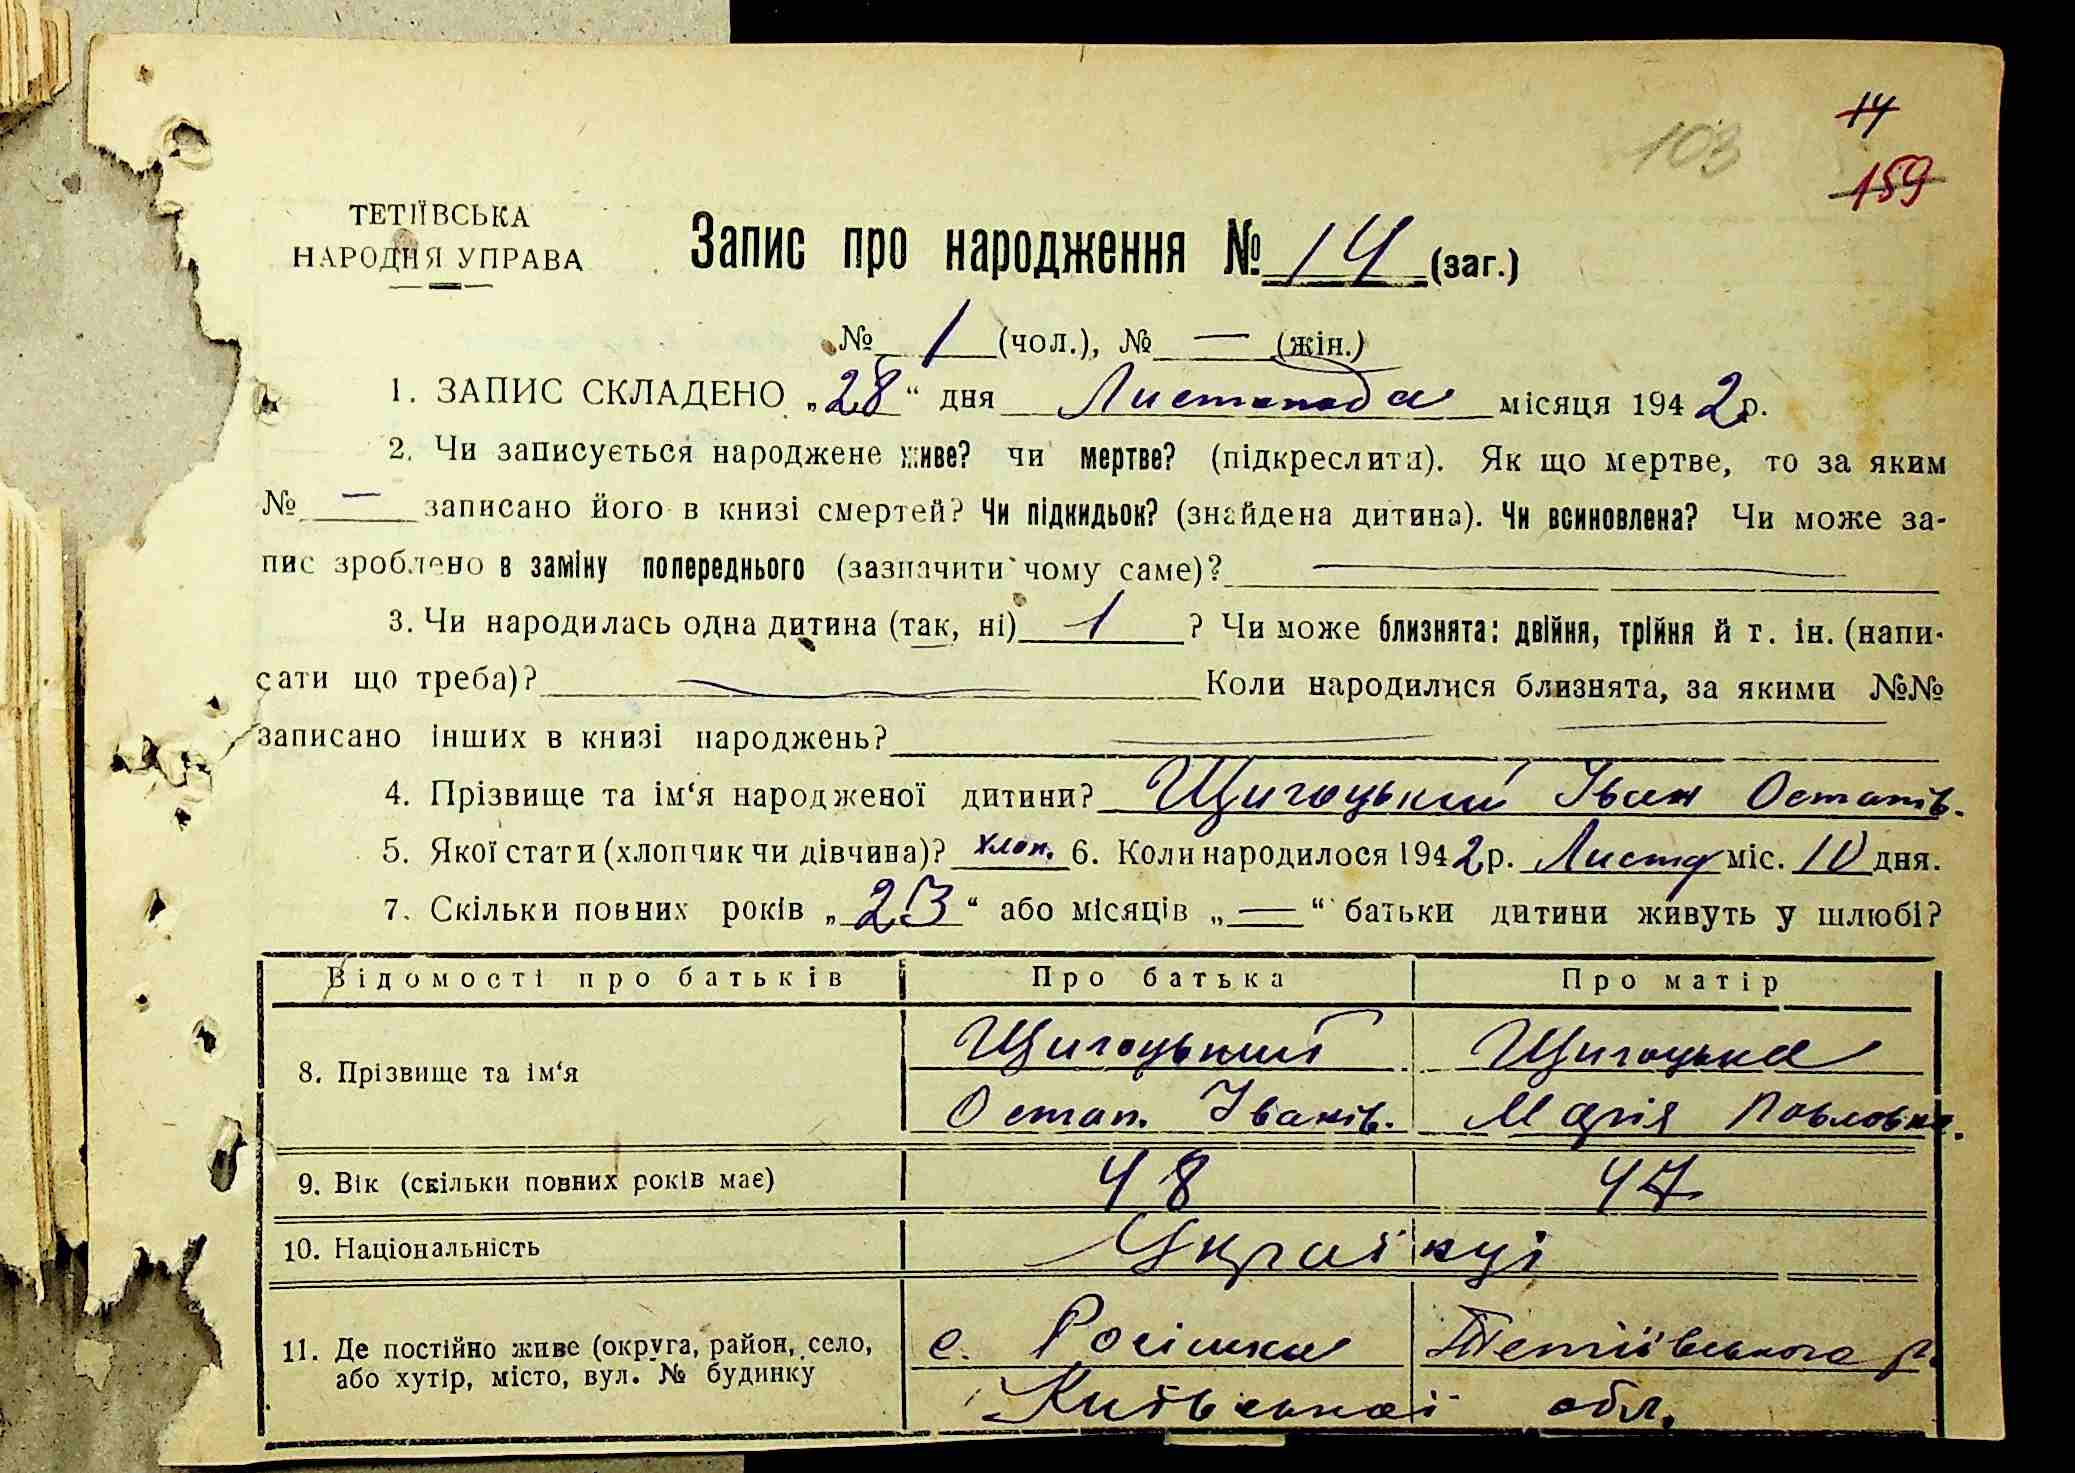 14
103
159
ТЕТІЇВСЬКА
НАРОДНЯ УПРАВА
Запис про народження № 14 (заг.)
№ 1 (чол.), № — (жін.)
1. ЗАПИС СКЛАДЕНО „28“ дня Листопада місяця 1942 р.
2. Чи записується народжене живе? чи мертве? (підкреслити). Як що мертве, то за яким
№ — записано його в книзі смертей? Чи підкидьок? (знайдена дитина). Чи всиновлена? Чи може за-
пис зроблено в заміну попереднього (зазначити чому саме)? —
3. Чи народилась одна дитина (так, ні) 1 ? Чи може близнята: двійня, трійня й т. ін. (напи-
сати що треба)? — Коли народилися близнята, за якими №№
записано інших в книзі народжень? —
4. Прізвище та ім‘я народженої дитини? Щигоцький Іван Остапів.
5. Якої стати (хлопчик чи дівчина)? хлоп. 6. Коли народилося 1942 р. Листоп міс. 10 дня.
7. Скільки повних років „23“ або місяців „—“ батьки дитини живуть у шлюбі?
Відомості про батьків Про батька Про матір
8. Прізвище та ім‘я Щигоцький Щигоцька
Остап. Іванів. Марія Павловна.
9. Вік (скільки повних років має) 48 47
10. Національність Українці
11. Де постійно живе (округа, район, село, с. Росішка Тетіївського р.
або хутір, місто, вул. № будинку Київської обл.